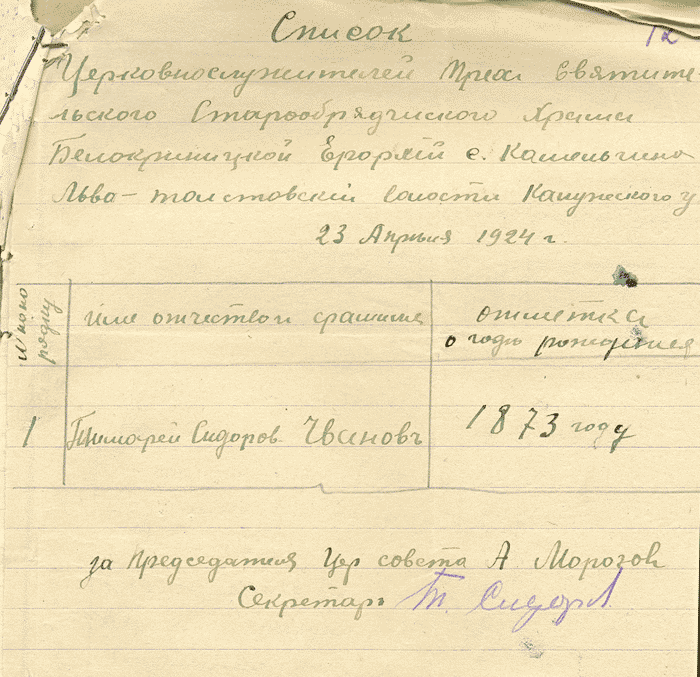 Список
12
Церковнослужителей Трех Святите-
льского Старообрядческого Храма
Белокриницкой с.
Льва-толстовский волости Калужского у
23 Апрыля 1924 г.
№ по по
рядку
имя отчество и фамилия
отметка
о годъ рождения
1
Сидоров Ивановъ
1873 году
за Председателя Цер совета А Морозов
Секретарь Т. Сидоров